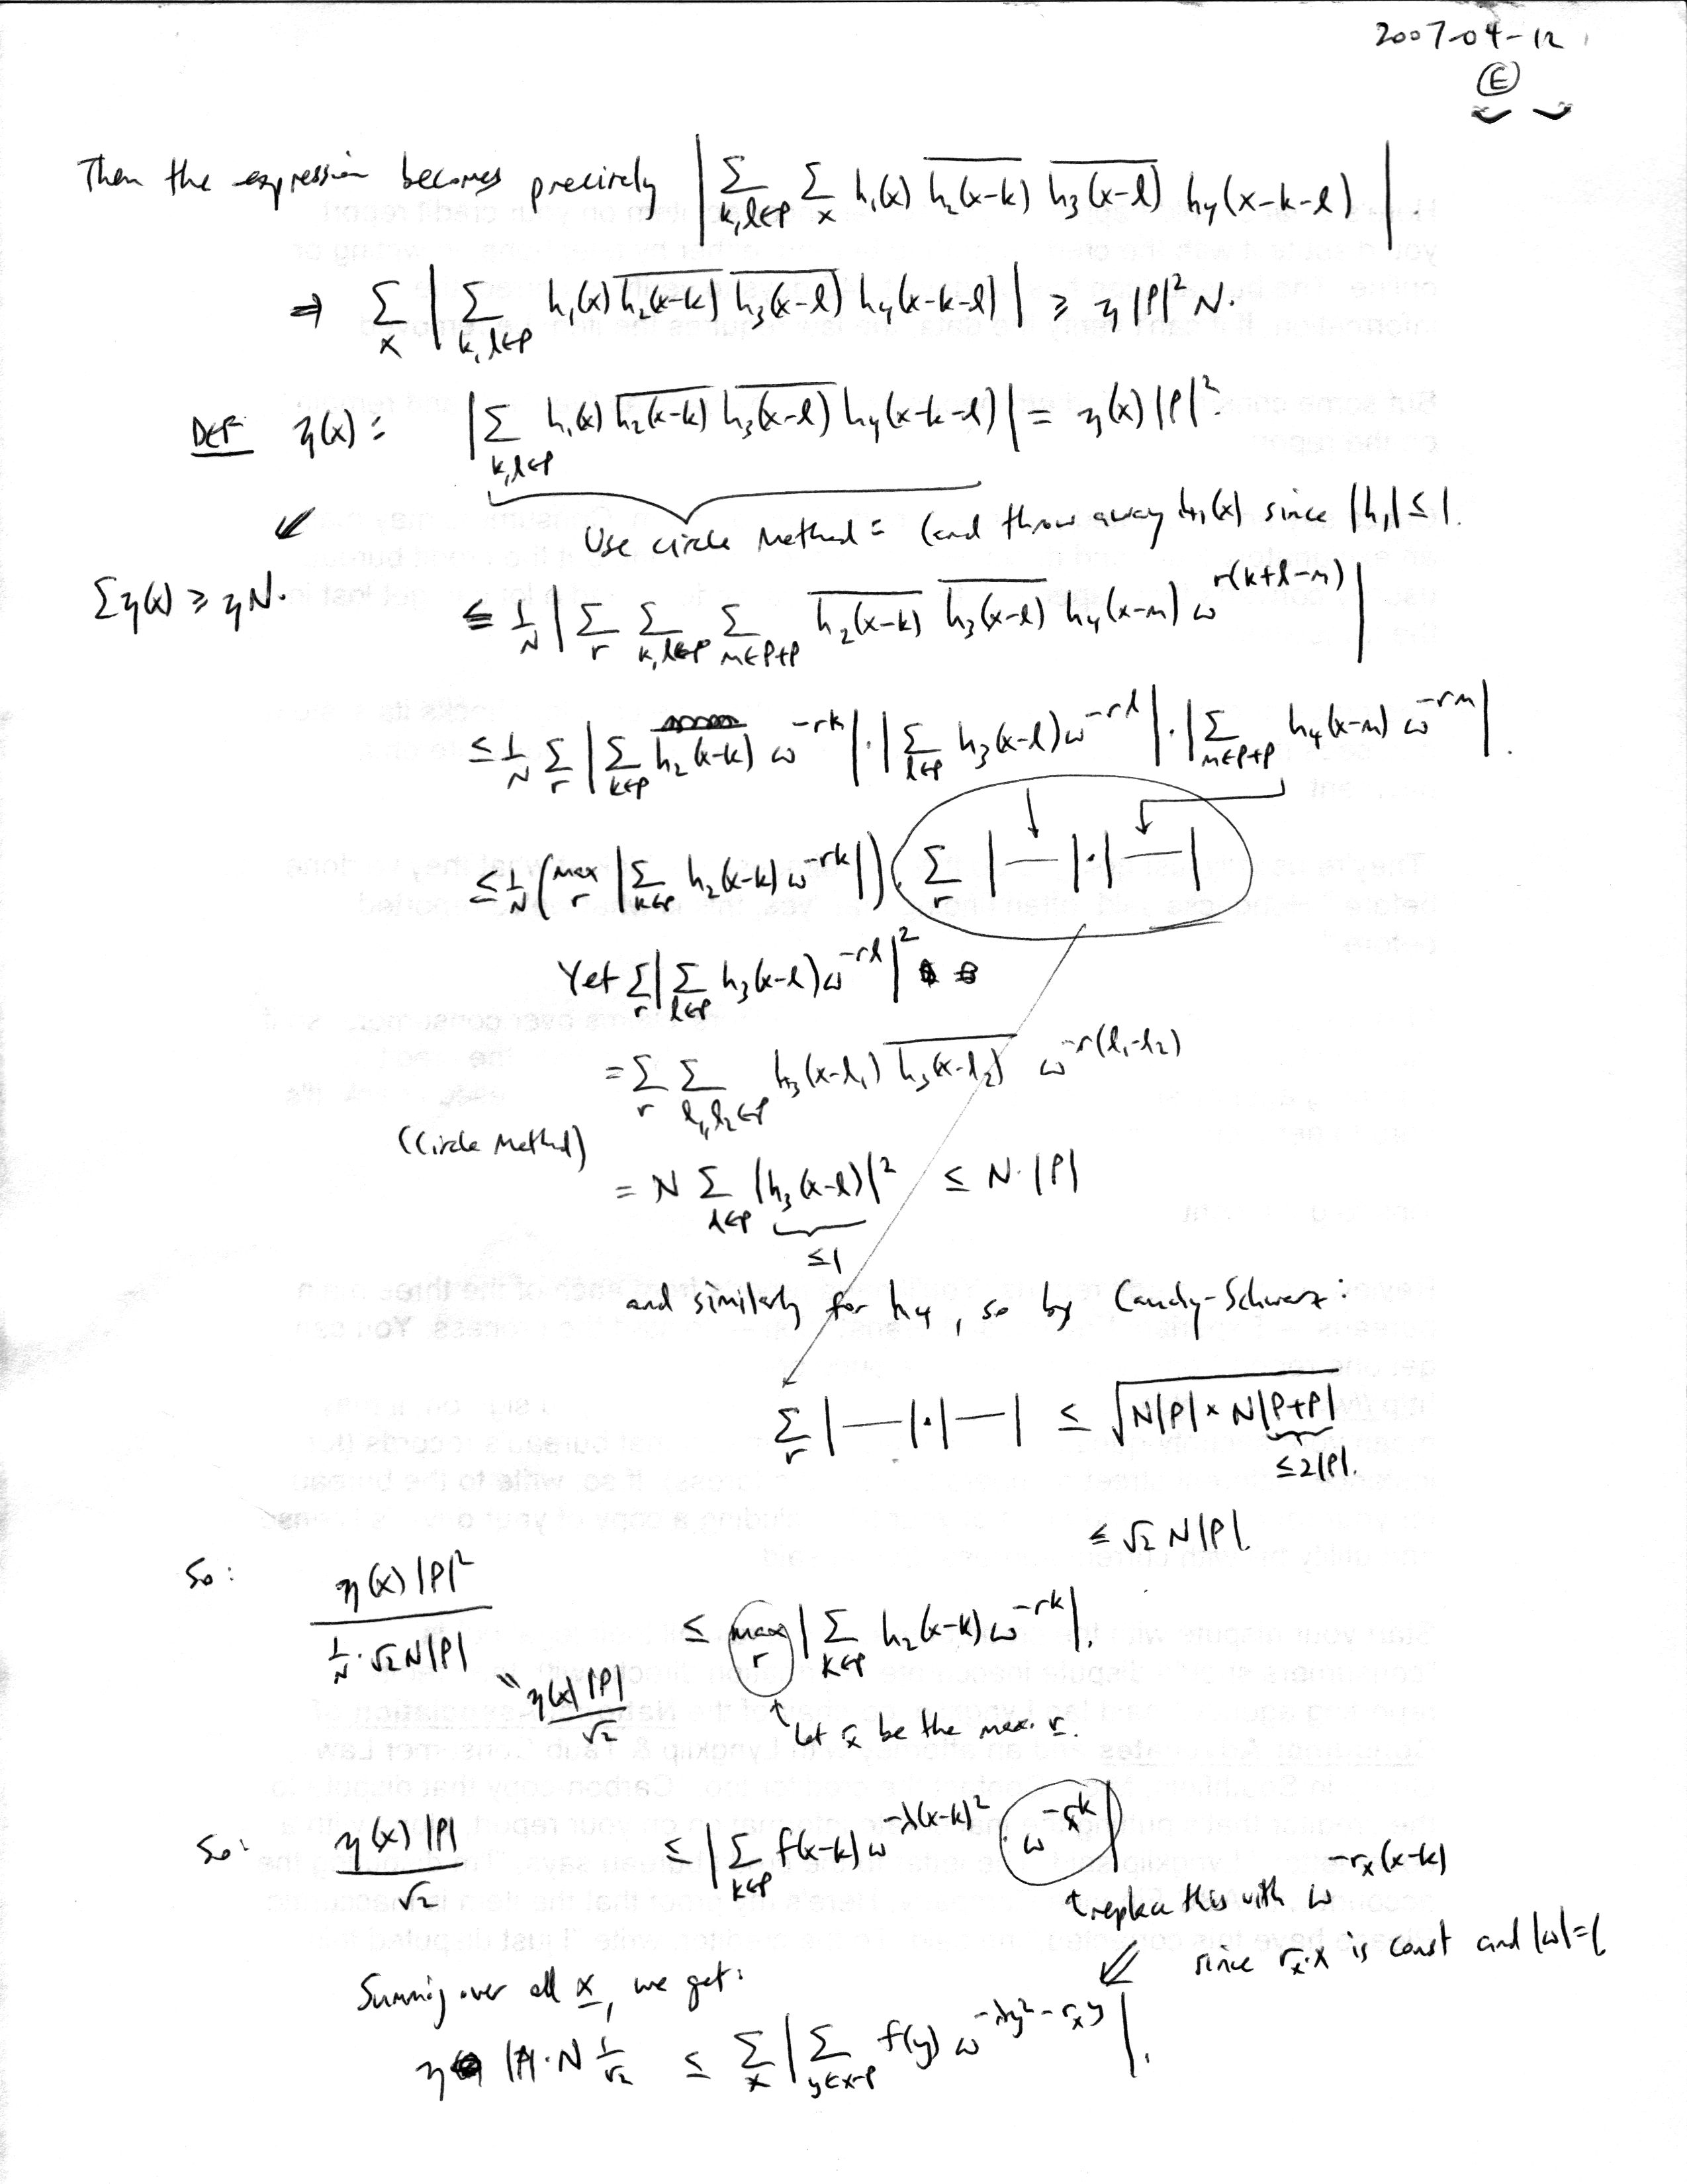 2007-04-12
Ⓔ
Then the expression becomes precisely | Σ_{k,l∈P} Σ_x h₁(x) \overline{h₂(x-k)} \overline{h₃(x-l)} h₄(x-k-l) |.
⇒ Σ_x | Σ_{k,l∈P} h₁(x) \overline{h₂(x-k)} \overline{h₃(x-l)} h₄(x-k-l) | ≥ η |P|² N.
DEF η(x): | Σ_{k,l∈P} h₁(x) \overline{h₂(x-k)} \overline{h₃(x-l)} h₄(x-k-l) | = η(x) |P|².
↙ Use circle method: (and throw away h₁(x) since |h₁| ≤ 1.
Ση(x) ≥ ηN. ≤ 1/N | Σ_r Σ_{k,l∈P} Σ_{m∈P+P} \overline{h₂(x-k)} \overline{h₃(x-l)} h₄(x-m) ω^{r(k+l-m)} |
≤ 1/N Σ_r | Σ_{k∈P} h₂(x-k) ω^{-rk} | · | Σ_{l∈P} h₃(x-l) ω^{-rl} | · | Σ_{m∈P+P} h₄(x-m) ω^{-rm} |.
≤ 1/N ( max_r | Σ_{k∈P} h₂(x-k) ω^{-rk} | ) · Σ_r | — | · | — |
Yet Σ_r | Σ_{l∈P} h₃(x-l) ω^{-rl} |²
= Σ_r Σ_{l₁,l₂∈P} h₃(x-l₁) \overline{h₃(x-l₂)} ω^{-r(l₁-l₂)}
(Circle Method)
= N Σ_{l∈P} |h₃(x-l)|² ≤ N·|P|
≤1
and similarly for h₄, so by Cauchy-Schwarz:
Σ_r | — | · | — | ≤ √(N|P| × N|P+P|)
≤2|P|.
≤ √2 N|P|.
So: η(x) |P|² / (1/N · √2 N|P|) ≤ max_r | Σ_{k∈P} h₂(x-k) ω^{-rk} |.
" η(x) |P| / √2 ↑ Let r_x be the max. r.
So: η(x) |P| / √2 ≤ | Σ_{k∈P} f(x-k) ω^{-λ(x-k)²} · ω^{-r_x k} |
↑ replace this with ω^{-r_x(x-k)}
↙ since r_x·x is const and |ω|=1
Summing over all x, we get:
η |P|·N 1/√2 ≤ Σ_x | Σ_{y∈x-P} f(y) ω^{-λy² - r_x y} |.